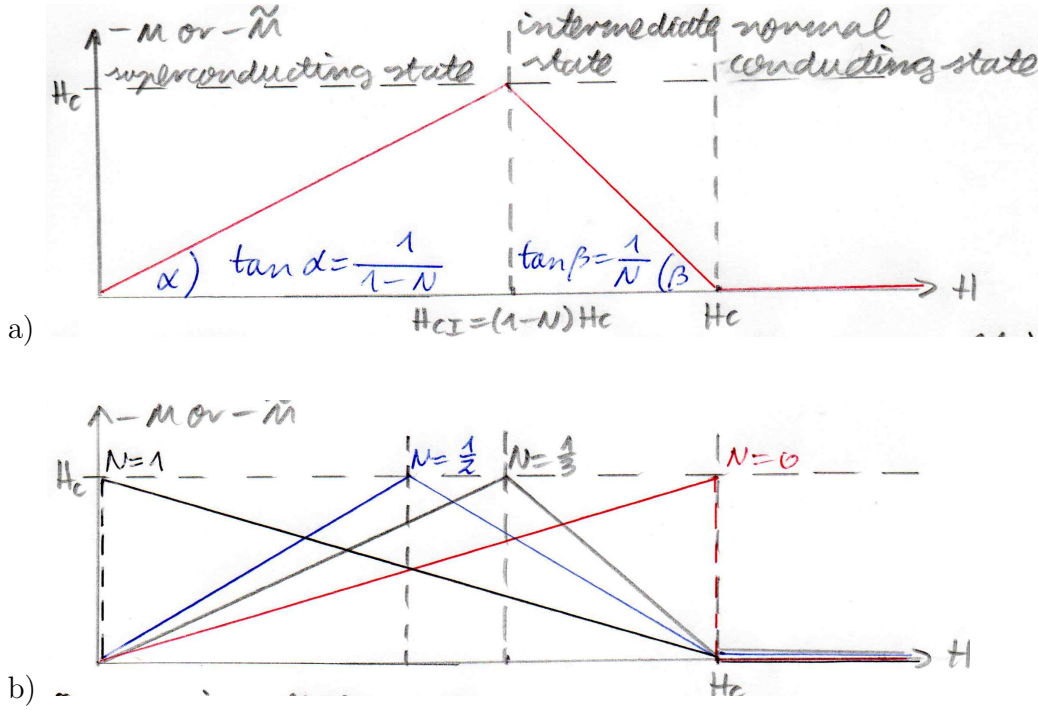 - M or - M̃
superconducting state
intermediate
state
normal
conducting state
Hc
α) tan α = 1/(1-N)
tan β = 1/N (β
H
H_CI = (1-N) Hc
Hc
a)
- M or - M̃
Hc
N=1
N=1/2
N=1/3
N=0
H
Hc
b)